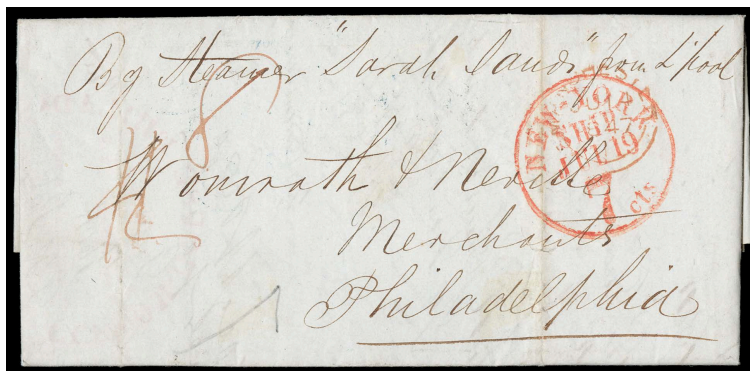 By Steamer "Sarah Sands" from L'pool
8
NEW-YORK
SHIP
19
7 cts
& Neville
Merchants
Philadelphia